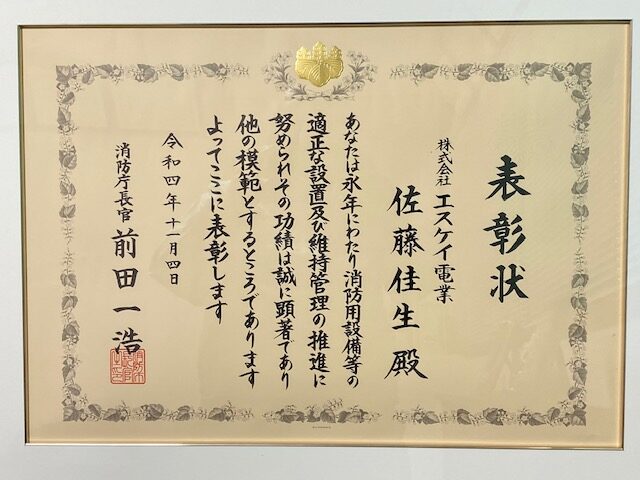 表彰状
株式会社 エスケイ電業
佐藤佳生 殿
あなたは永年にわたり消防用設備等の
適正な設置及び維持管理の推進に
努められその功績は誠に顕著であり
他の模範とするところであります
よってここに表彰します
令和四年十一月四日
消防庁長官 前田一浩